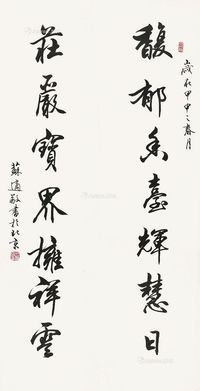 歲在甲申之春月
馥郁香臺輝慧日
莊嚴寶界擁祥雲
蘇適敬書於北京